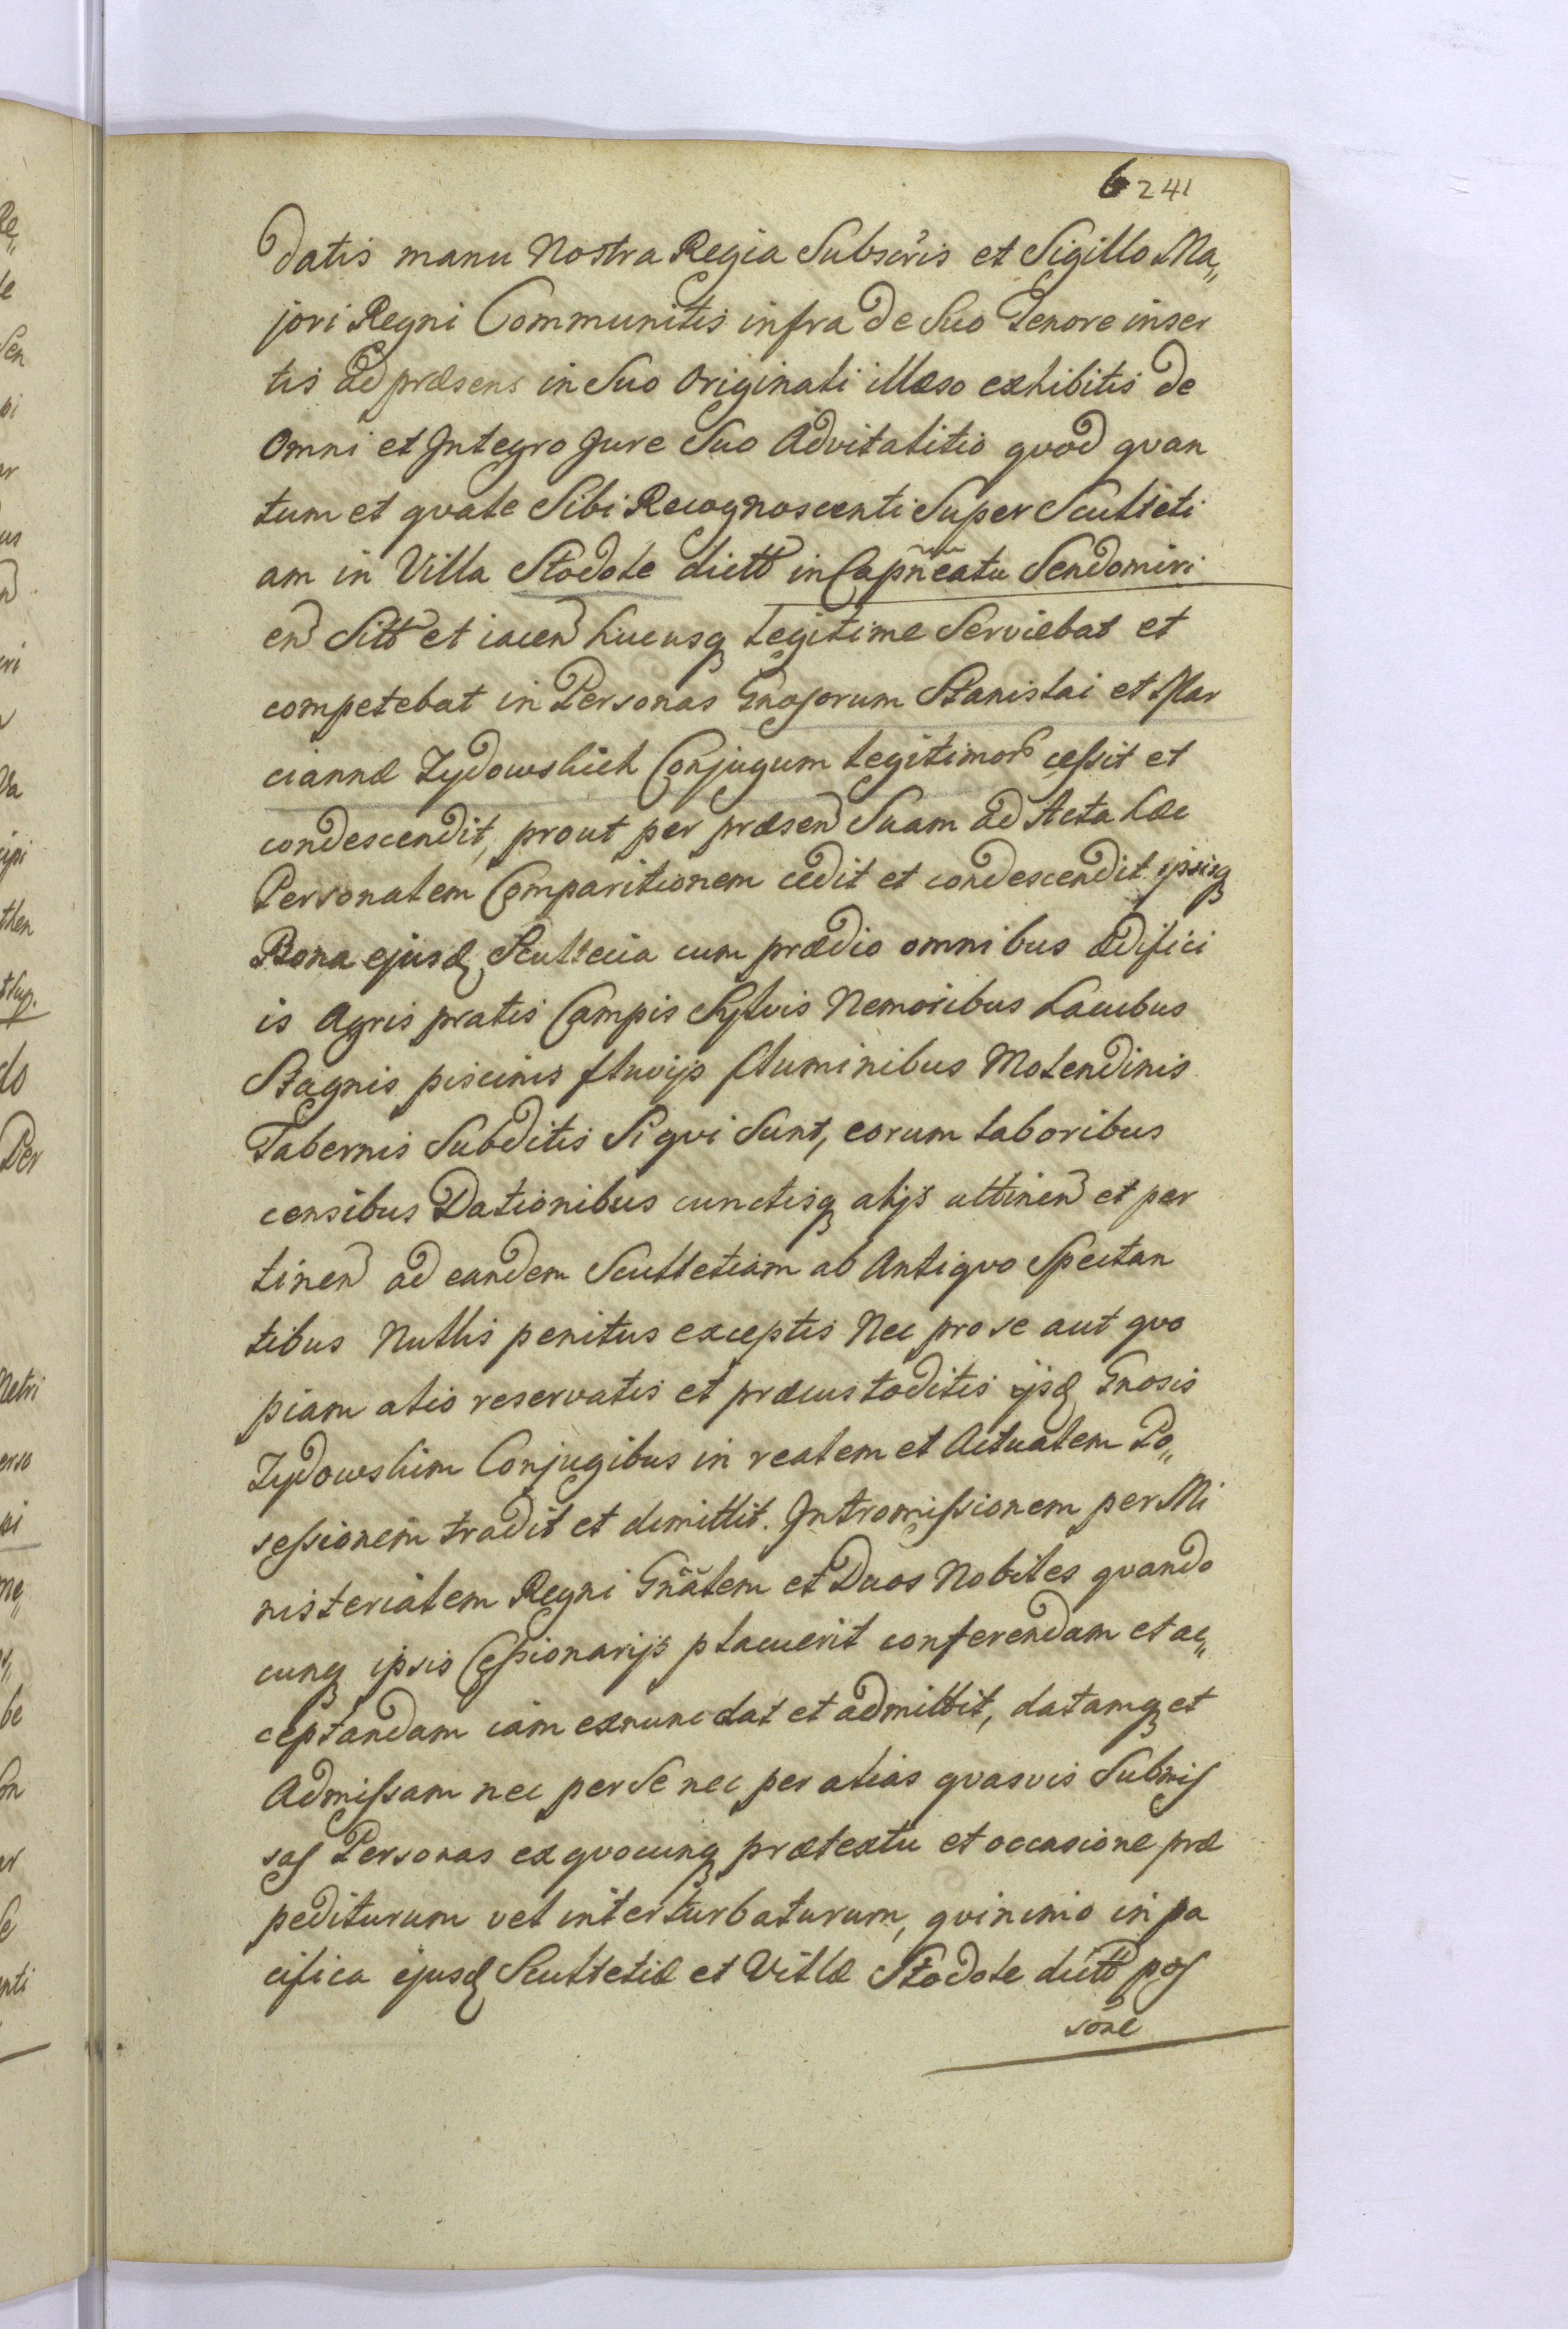 6 241
datis manu Nostra Regia Subscris et Sigillo Ma„
jori Regni Communitis infra de Suo Tenore inser
tis ad præsens in Suo Originali illæso exhibitis de
Omni et Integro Jure Suo Advitalitio qvod qvan
tum et qvale Sibi Recognoscenti Super Sculteti
am in Villa Stodole dictt in Capneatu Sendomiri
en Sitt et iacen hucusq Legitime Serviebat et
competebat in Personas Gnosorum Stanislai et Mar
ciannæ Zydowskich Conjugum Legitimor cessit et
condescendit, prout per præsen Suam ad Acta hæc
Personalem Comparitionem cedit et condescendit ipsisq
Bona ejusd Scultecia cum prædio omnibus ædifici
is Agris pratis Campis Sylvis Nemoribus Lacubus
Stagnis piscinis fluvijs fluminibus Molendinis
Tabernis Subditis Si qvi Sunt, eorum laboribus
censibus Dationibus cunctisq alijs attinen et per
tinen ad eandem Scultetiam ab Antiqvo Spectan
tibus Nullis penitus exceptis Nec pro se aut qvo
piam alio reservatis et præcustoditis ijsd Gnosis
Zydowskim Conjugibus in realem et Actualem Po„
sessionem tradit et dimittit. Intromissionem per Mi
nisterialem Regni Gnalem et Duos Nobiles qvando
cunq ipsis Cessionarijs placuerit conferendam et ac„
ceptandam iam exnunc dat et admittit, datamq et
Admissam nec per Se nec per alias qvasvis Submis
sas Personas ex qvocunq prætextu et occasione præ
pediturum vel interturbaturum, qvinimo in pa
cifica ejusd Scultetiæ et Villæ Stodole dictt pos
sone